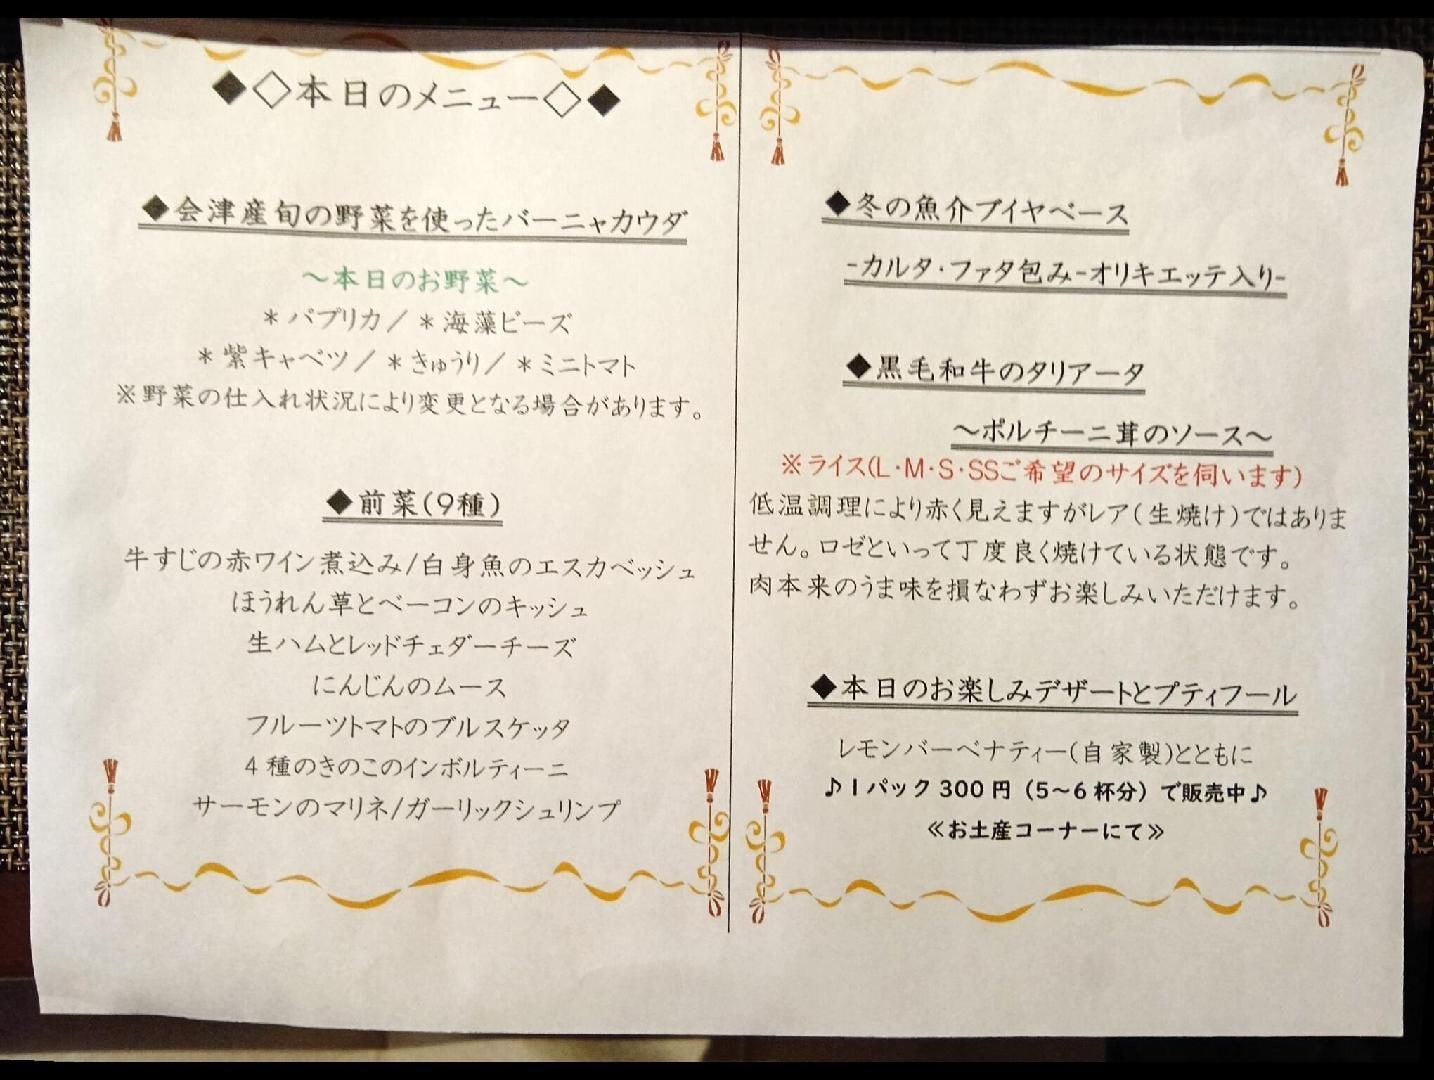 ◆◇本日のメニュー◇◆
◆会津産旬の野菜を使ったバーニャカウダ
～本日のお野菜～
＊パプリカ／＊海藻ビーズ
＊紫キャベツ／＊きゅうり／＊ミニトマト
※野菜の仕入れ状況により変更となる場合があります。
◆前菜(9種)
牛すじの赤ワイン煮込み/白身魚のエスカベッシュ
ほうれん草とベーコンのキッシュ
生ハムとレッドチェダーチーズ
にんじんのムース
フルーツトマトのブルスケッタ
4種のきのこのインボルティーニ
サーモンのマリネ/ガーリックシュリンプ
◆冬の魚介ブイヤベース
-カルタ・ファタ包み-オリキエッテ入り-
◆黒毛和牛のタリアータ
～ポルチーニ茸のソース～
※ライス(L・M・S・SSご希望のサイズを伺います)
低温調理により赤く見えますがレア(生焼け)ではありま
せん。ロゼといって丁度良く焼けている状態です。
肉本来のうま味を損なわずお楽しみいただけます。
◆本日のお楽しみデザートとプティフール
レモンバーベナティー(自家製)とともに
♪1パック300円（5～6杯分）で販売中♪
≪お土産コーナーにて≫